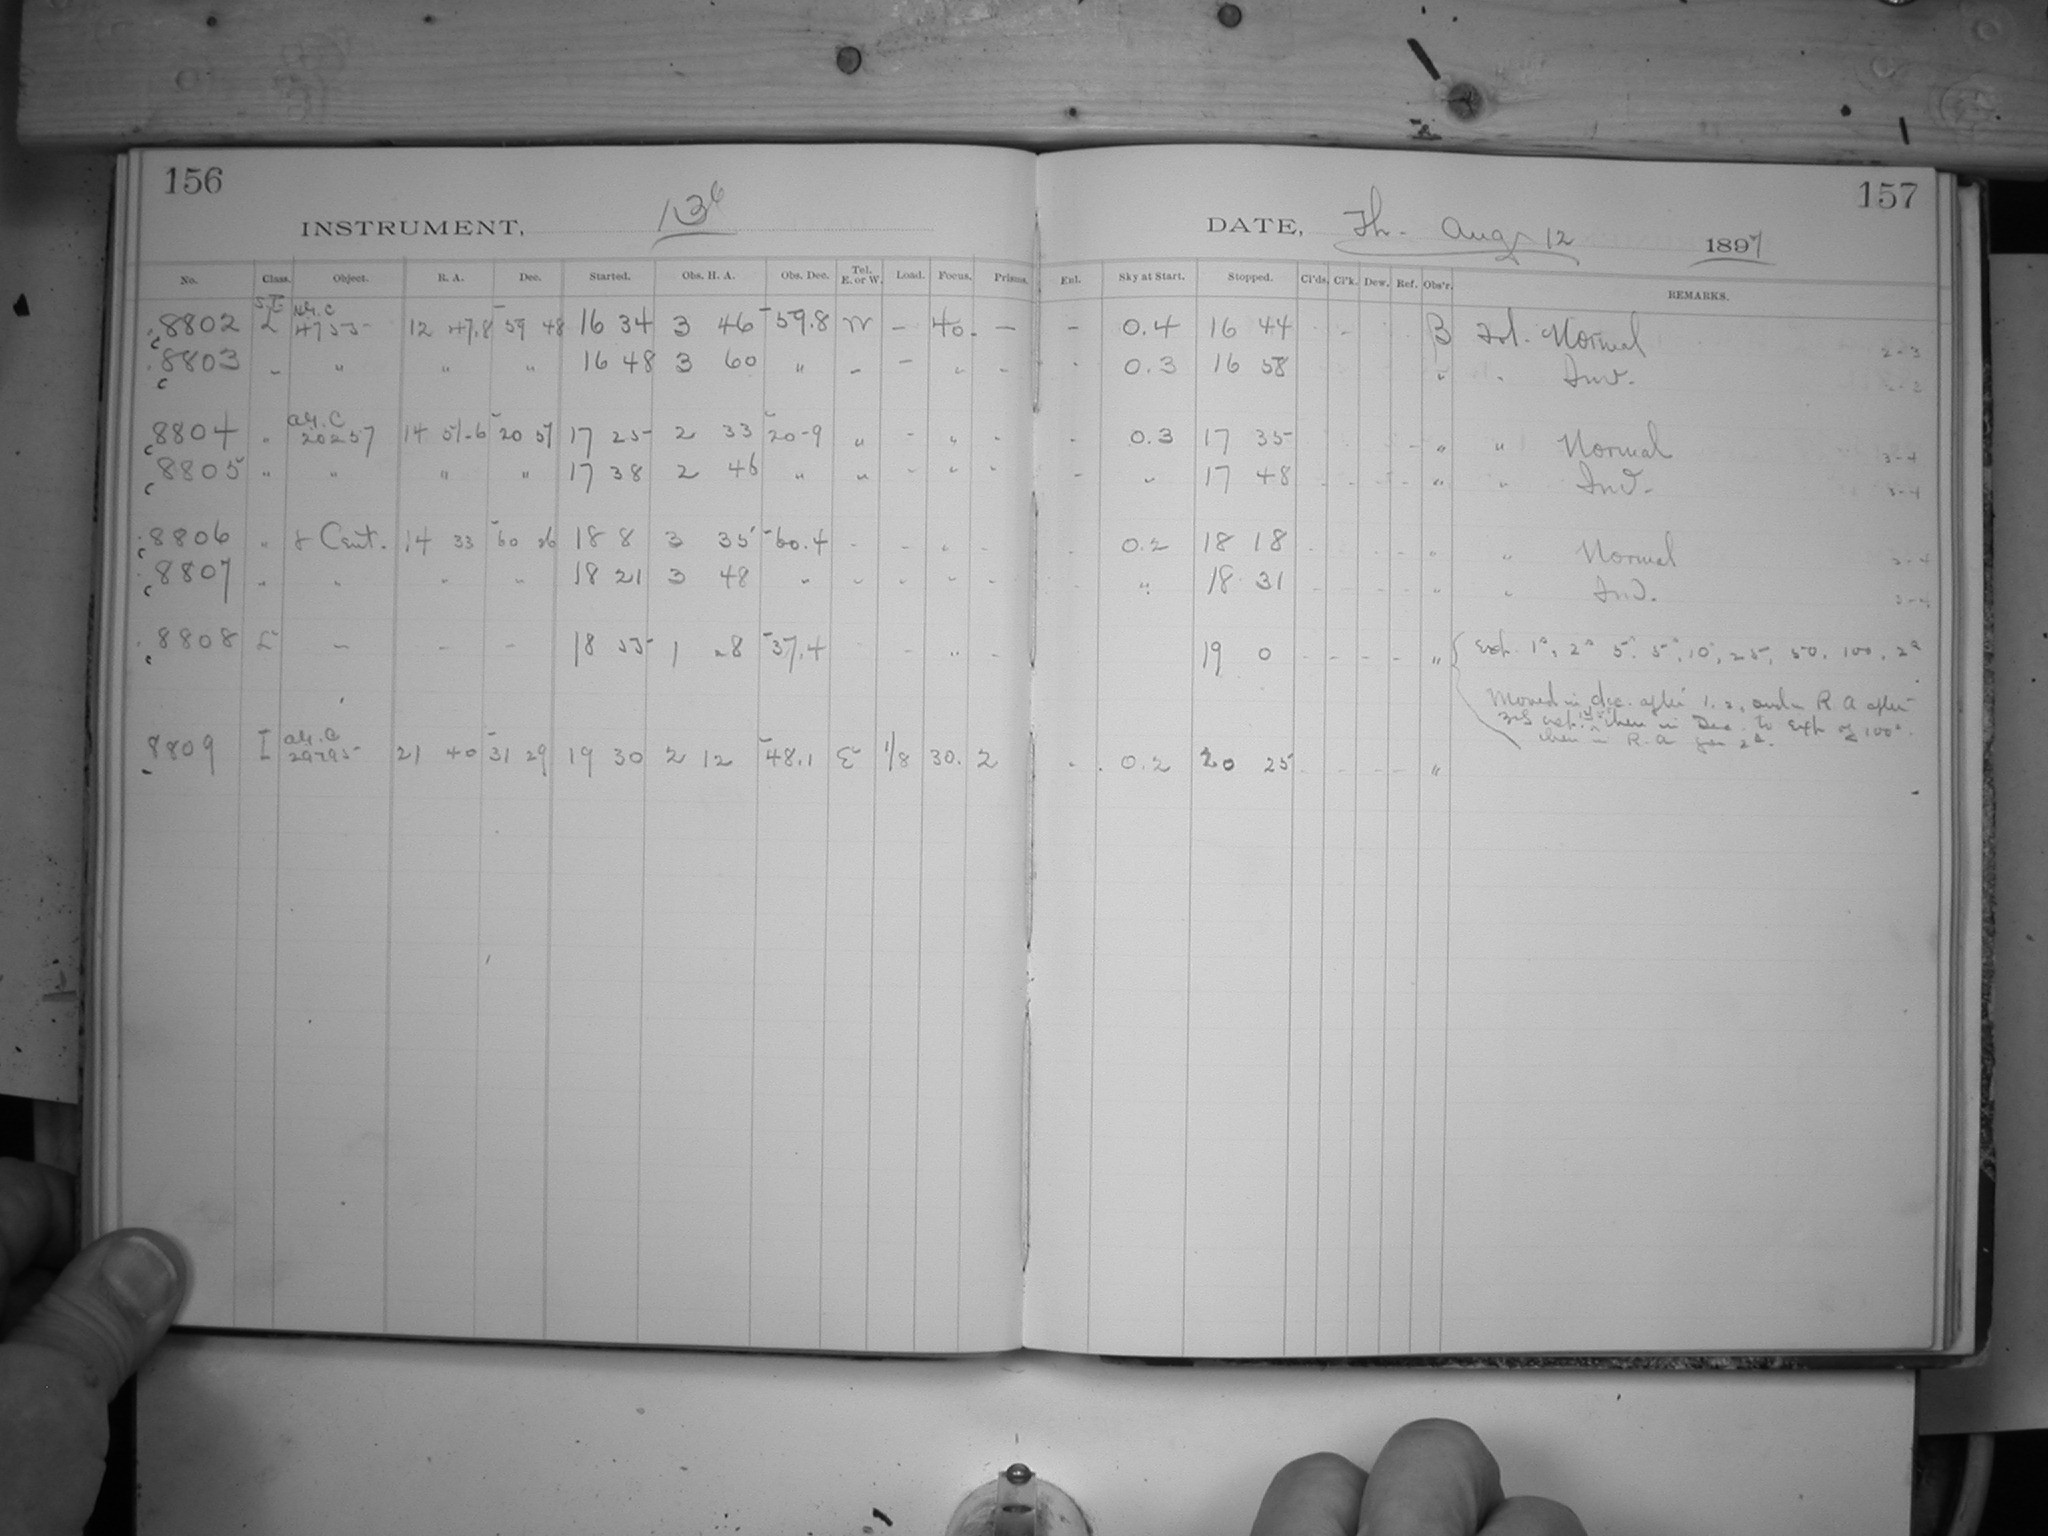 156
157
INSTRUMENT, 13
DATE, Th. Aug 12 1897
No. Class. Object. R. A. Dec. Started. Obs. H. A. Obs. Dec. Tel. E. or W. Load. Focus. Prisms. Ent. Sky at Start. Stopped. Cl'ds. Cl'k. Dew. Ref. Obs'r. REMARKS.
8802 L N.G.C 4755 12 47.8 -59 48 16 34 3 46 -59.8 W - 40. - - 0.4 16 44 B Fol. Normal 2-3
8803 " " " " 16 48 3 60 " - 0.3 16 58 " " Inv.
8804 " A.G.C 20257 14 51.6 -20 57 17 25 2 33 -20.9 " - " - 0.3 17 35 " " Normal 3-4
8805 " " " " 17 38 2 46 " " - " " - " 17 48 " " Inv. 3-4
8806 " Cent. 14 33 -60 26 18 8 3 35 -60.4 - - " - 0.2 18 18 " " Normal
8807 " " " " 18 21 3 48 " " 18 31 " " Inv. 3-4
8808 - - - 18 55 1 28 -37.4 - " - 19 0 - - - - " Exp. 1s, 2s, 5s, 5s, 10, 25, 50, 100, 2s
Moved in dec. after 1. 2, and in R. A after
exp. then in Dec. to Exp of 100s.
then in R. A for 2s.
8809 I A.G.C 29795 21 40 -31 29 19 30 2 12 -48.1 E 1/8 30. 2 - 0.2 20 25 - - - - "